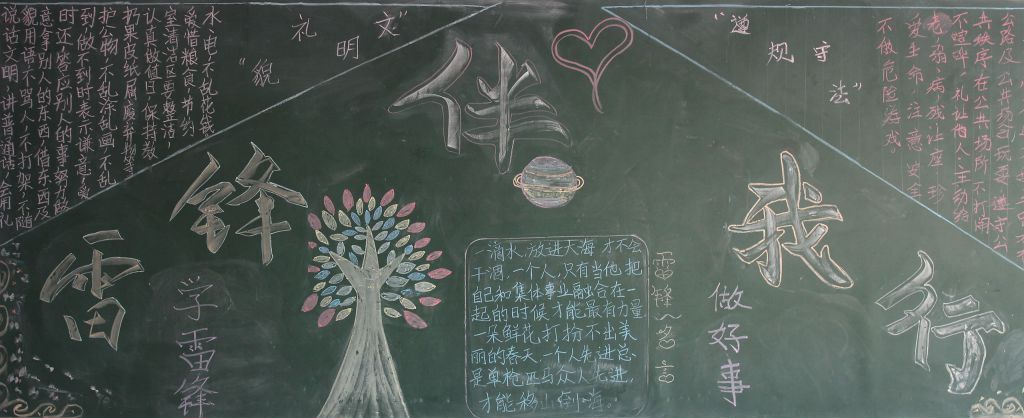 雷锋伴我行
"文明礼貌"
"遵规守法"
学雷锋
做好事
雷锋名言
一滴水,放进大海才不会
干涸,一个人,只有当他把
自己和集体事业融合在一
起的时候才能最有力量
一朵鲜花打扮不出美
丽的春天,一个人先进总
是单枪匹马众人先进,
才能移山倒海。
水电不乱花钱
爱惜粮食,节约
室清洁区要整洁,
认真做值日,保持教
扔果皮纸屑废弃物等
护公物,不乱涂乱画不乱
到,做不到时表示歉意,爱
时还,答应别人的事努力做
意拿别人的东西,借东西及
貌用语不骂人,不打架,不随
说话文明,讲普通话,会用礼
共秩序在公共场所不打闹
不喧哗,礼让他人,主动给
老弱病残让座,珍
爱生命,注意安全
不做危险游戏